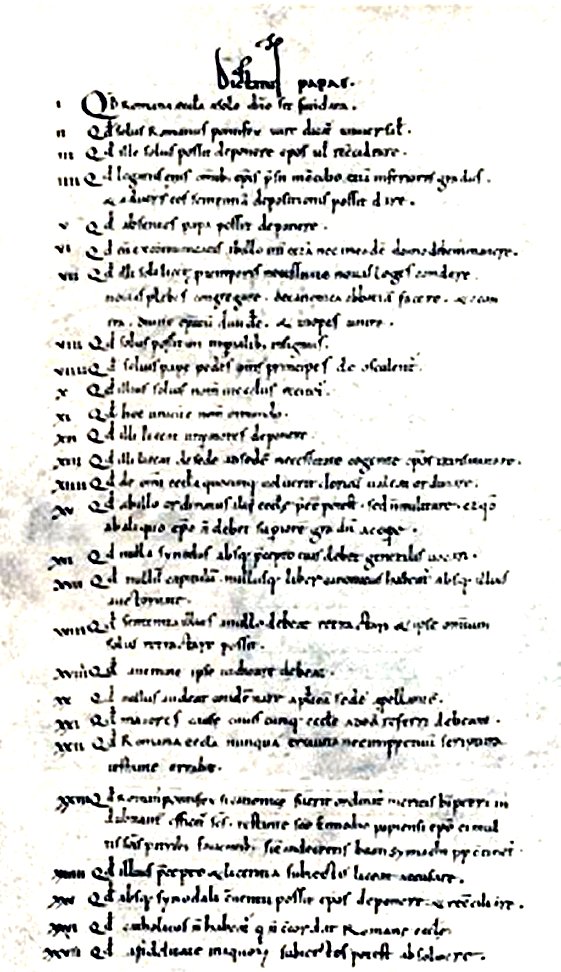 Dictatus papae.
I Qd Romana eccła a solo dño sit fundata.
II Qd solus Romanus pontifex iure dicat͛ universał.
III Qd ille solus possit deponere ep̃os uł reconciliare.
IIII Qd legatus eius omib; ep̃is p̃sit in c̃cilio etiã inferioris gradus.
& adversus eos sententiã depositionis possit dare.
V Qd absentes papa possit deponere.
VI Qd cũ excõmunicatis ab illo int̃ cetã nec in eadẽ domo debem manere.
VII Qd illi soli licet p̃ temporis necessitate novas leges condere.
novas plebes congregare. de canonica abbatiã facere. & econ
tra. divite ep̃atũ dividere. & inopes unire.
VIII Qd solus possit uti imp̃ialib; insigniis.
VIIII Qd solius papę pedes om̃s principes deosculent͛.
X Qd illius solius nom̃ in ecclis recitet͛.
XI Qd hoc unicũ est nom̃ in mundo.
XII Qd illi liceat imp̃atores deponere.
XIII Qd illi liceat de sede ad sedẽ necessitate cogente ep̃os transmutare.
XIIII Qd de om̃i eccła quocunq; voluerit clericũ valeat ordinare.
XV Qd ab illo ordinatus alii eccłę p̃esse potest. sed ñ militare. et qd
ab aliquo ep̃o ñ debet superiorẽ gradũ accipe.
XVI Qd nulla synodus absq; p̃cepto eius debet generalis vocari.
XVII Qd nullũ capitulũ nullusq; liber canonicus habeat͛ absq; illius
auctoritate.
XVIII Qd sententia illius a nullo debeat retractari & ipse omniũ
solus retractare possit.
XVIIII Qd a nemine ipse iudicari debeat.
XX Qd nullus audeat condẽnare aplicã sedẽ apellantẽ.
XXI Qd maiores causę cuiuscunq; eccłę ad eã referri debeant.
XXII Qd Romana eccła nunquã erravit nec imppetuũ scriptura
testante errabit.
XXIII Qd Romanus pontifex si canonice fuerit ordinat͛ meritis b̃ Petri in
dubitant͛ efficit͛ scs. testante sc̃o Ennodio papiensi ep̃o ei mul
tis scis patrib; faventib; sic̃ in decretis beati Symachi pp̃ c̃tinet͛.
XXIIII Qd illius p̃cepto & licentia subiectis liceat accusare.
XXV Qd absq; synodali c̃ventu possit ep̃os deponere. & rec̃ciliare.
XXVI Qd catholicus ñ habeat͛ q ñ c̃cordat Romanę eccłę.
XXVII Qd a fidelitate iniquorũ subiectos potest absolvere.